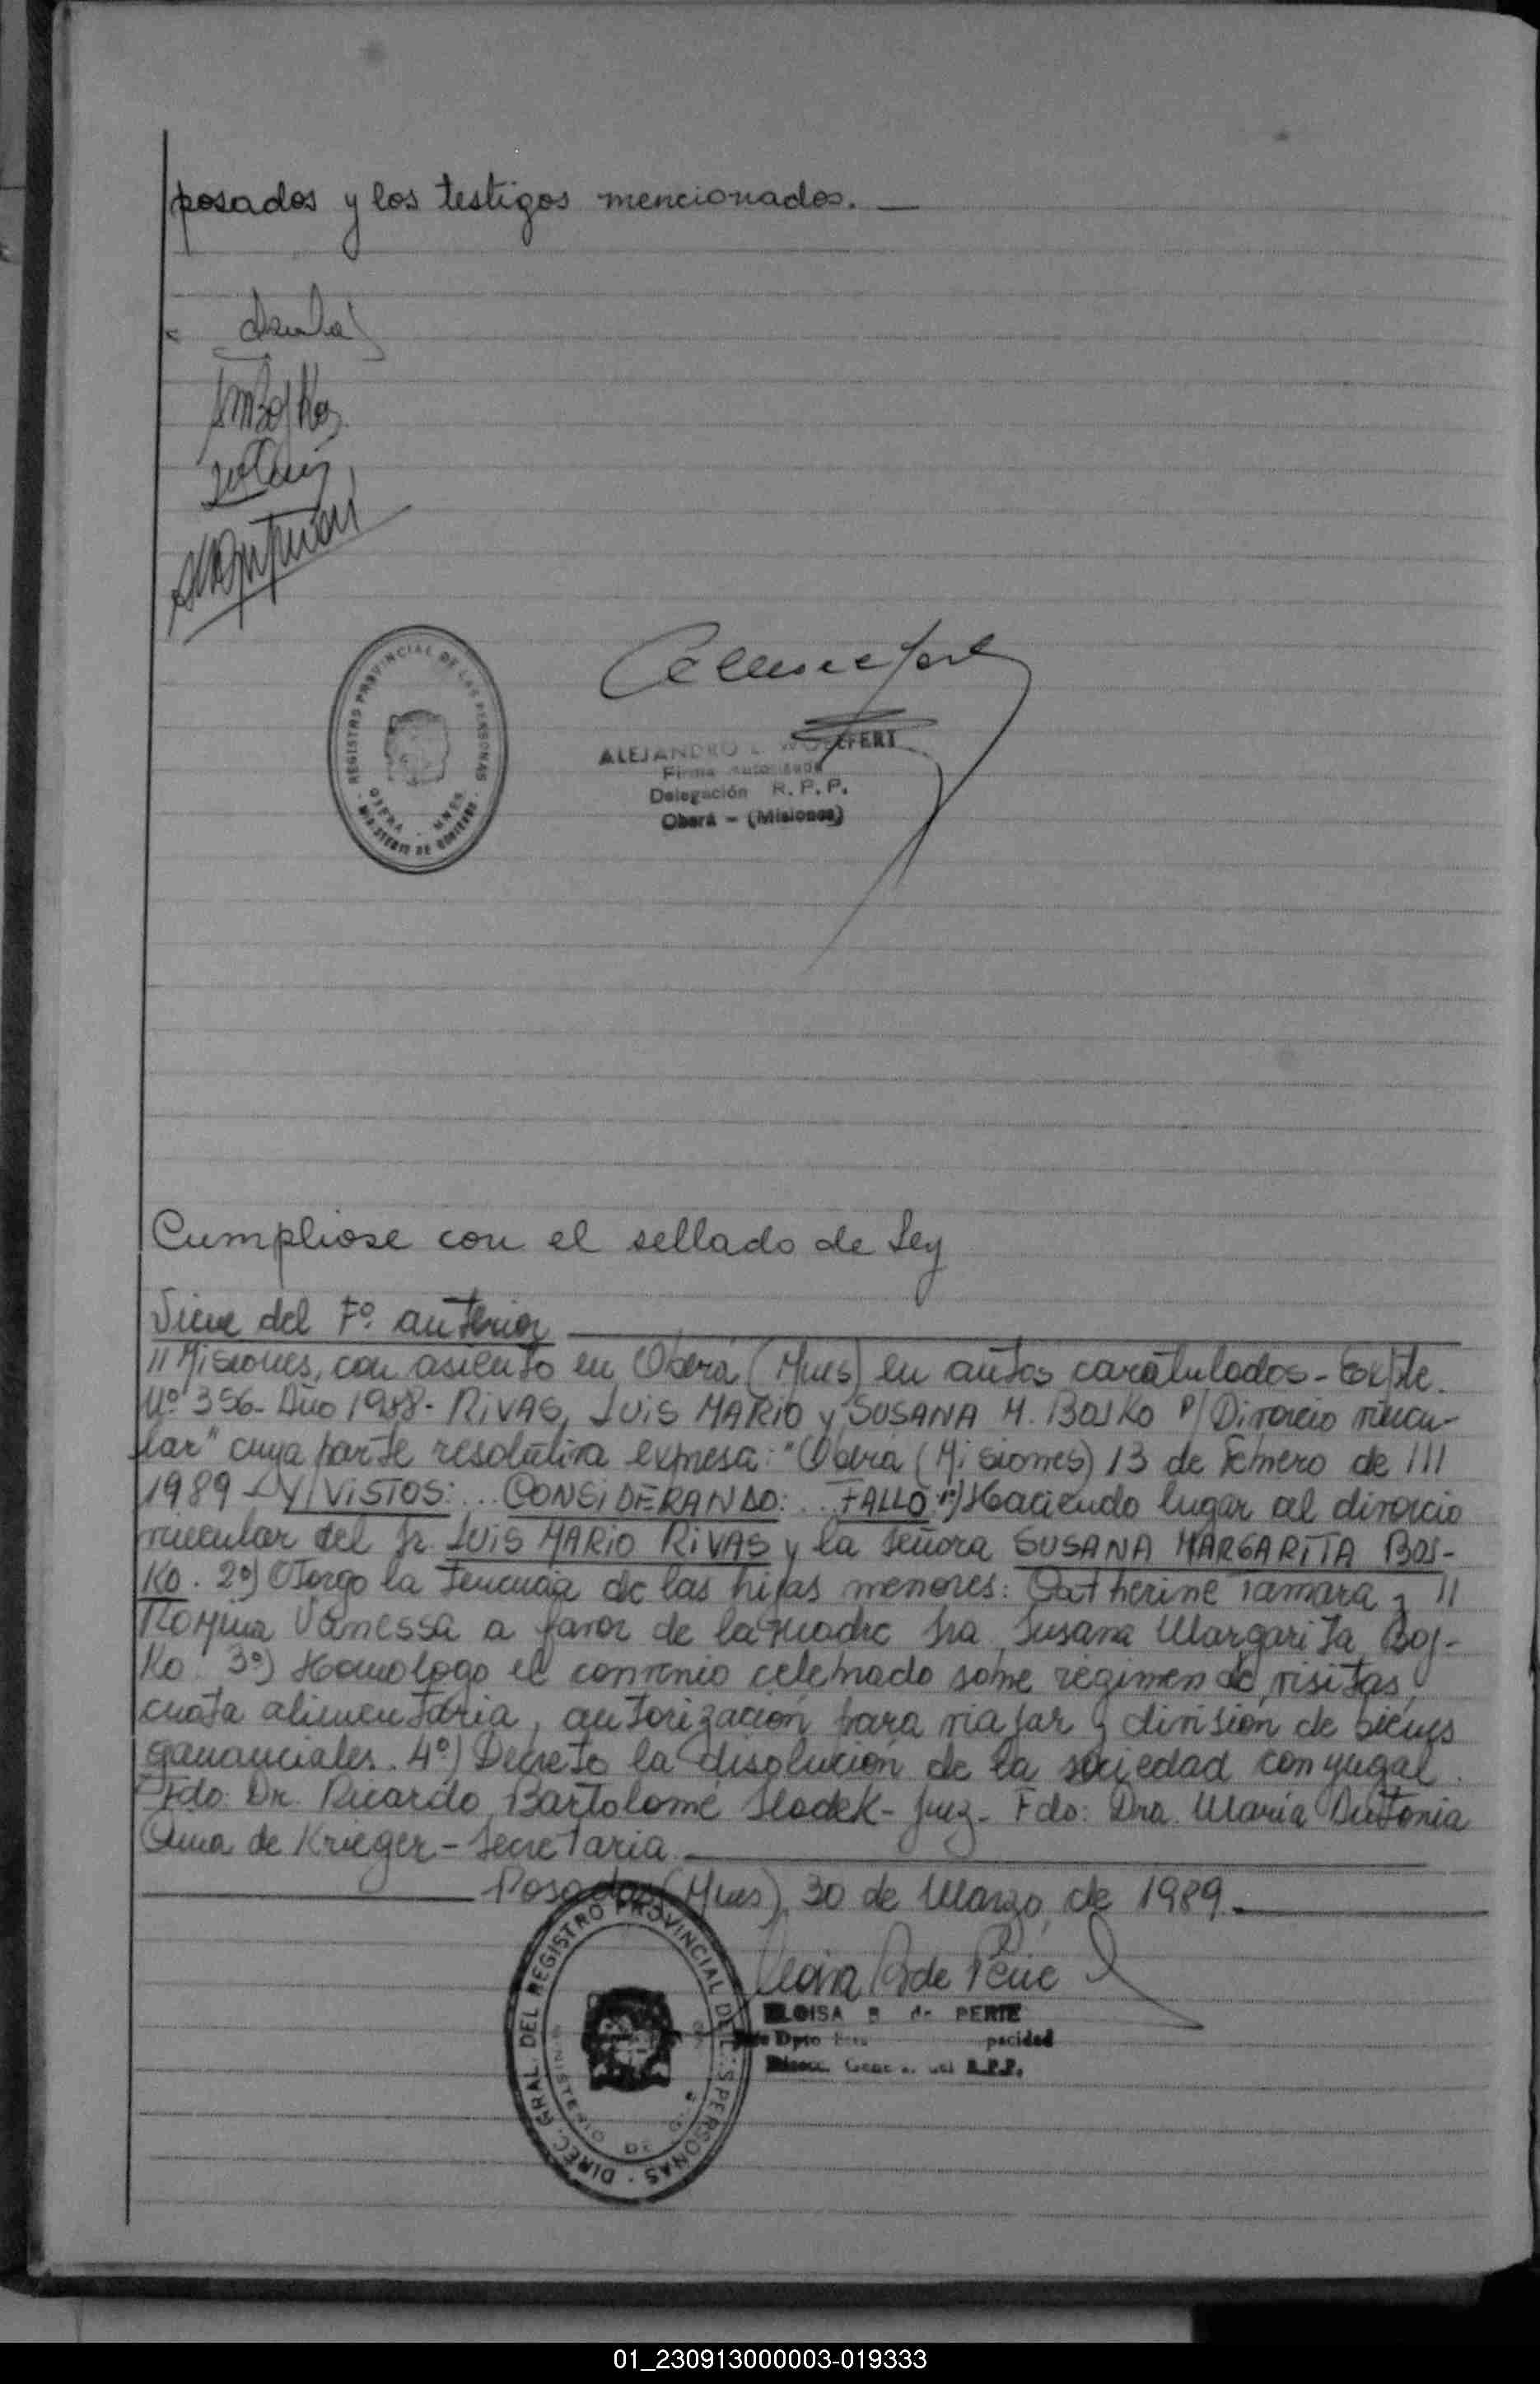 posados y los testigos mencionados. —
REGISTRO PROVINCIAL DE LAS PERSONAS
OBERA - MNES.
MINISTERIO DE GOBIERNO
ALEJANDRO E. WOLFERT
Firma Autorizada
Delegación R. P. P.
Oberá - (Misiones)
Cumpliose con el sellado de Ley
Viene del Fº. anterior
// Misiones, con asiento en Oberá (Mnes) en autos caratulados - Expte.
Nº 356 - Año 1988 - RIVAS, LUIS MARIO y SUSANA M. BOSKO P/ Divorcio vincu-
lar" cuya parte resolutiva expresa: "Oberá (Misiones) 13 de Febrero de ///
1989 - Y/VISTOS: ... CONSIDERANDO: ... FALLO: 1º) Haciendo lugar al divorcio
vincular del Sr LUIS MARIO RIVAS y la señora SUSANA MARGARITA BOS-
KO. 2º) Otorgo la tenencia de las hijas menores: Catherine Tamara y //
Romina Vanessa a favor de la madre Sra Susana Margarita Bos-
Ko. 3º) Homologo el convenio celebrado sobre régimen de visitas,
cuota alimentaria, autorización para viajar y división de bienes
gananciales. 4º) Decreto la disolución de la sociedad conyugal.
Fdo: Dr. Ricardo Bartolomé Slodek - Juez - Fdo: Dra. María Antonia
de Krieger - Secretaria.
Posadas (Mnes), 30 de Marzo de 1989.
DIREC. GRAL. DEL REGISTRO PROVINCIAL DE LAS PERSONAS
MINISTERIO DE
ELOISA B de PERIE
Dpto
pacidad
Direcc. General del R.P.P.
01_230913000003-019333